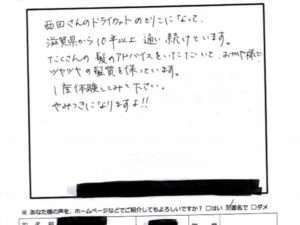 西田さんのドライカットのとりこになって、
滋賀県から10年以上通い続けています。
たくさんの髪のアドバイスをいただいて、おかげ様で
ツヤツヤの髪質を保っています。
1度体験してみて下さい。
やみつきになりますよ!!
※ あなた様の声を、ホームページなどでご紹介してもよろしいですか? □はい 匿名で □ダメ